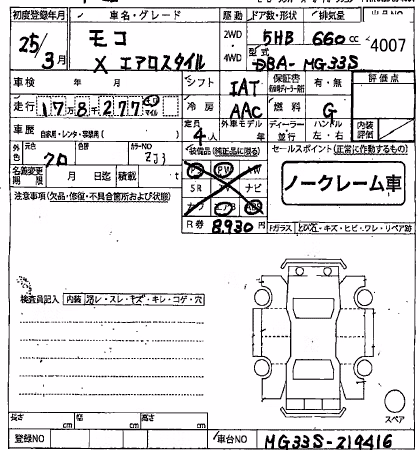 初度登録年月 車名・グレード 駆動 ドア数・形状 排気量
25/3月 モコ X エアロスタイル 2WD・4WD 5HB 660cc 4007
型式 DBA-MG33S
車検 年 月 シフト IAT 保証書 有・無 評価点
走行 17万8千277 km マイル 冷房 AAC 燃料 G
定員 4人 外車モデル 年 ディーラー・並行 ハンドル 左・右 内装評価
車歴 自家用・レンタ・事業用( )
外色 元色 クロ 色替 カラーNO ZJ3
装備品(純正品に限る) セールスポイント(正常に作動するもの)
PS PW AW
SR TV ナビ
カワ エアB ABS
ノークレーム車
名義変更期限 月 日迄 積載 t
R券 8,930円 Fガラス
キズ・ヒビ・ワレ・リペア跡
注意事項(欠品・修復・不具合箇所および状態)
検査員記入 内装 スレ・キズ・キレ・コゲ・穴
スペア
長さ cm 幅 cm 高さ cm
登録NO 車台NO MG33S-219416